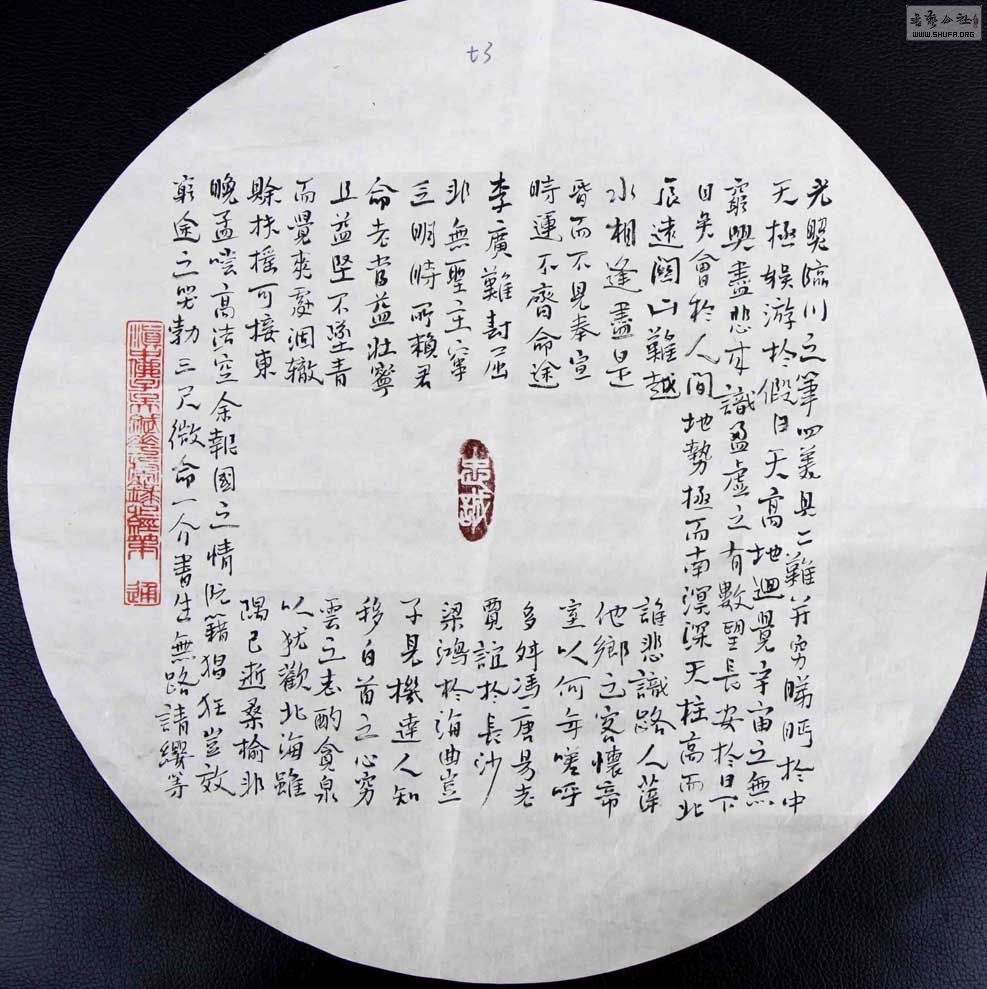 书艺公社
WWW.SHUFA.ORG
光照臨川之筆四美具二難并窮睇眄於中
天極娱游於假日天高地迥覺宇宙之無
窮興盡悲来識盈虚之有數望長安於日下
目吴會於人間地勢極而南溟深天柱高而北
辰遠關山難越誰悲識路人萍
水相逢盡是他鄉之客懷帝
閽而不見奉宣室以何年嗟呼
時運不齊命途多舛馮唐易老
李廣難封屈賈誼於長沙
非無聖主竄梁鴻於海曲豈
乏明時所賴君子見機達人知
命老當益壯寧移白首之心窮
且益堅不墜青雲之志酌貪泉
而覺爽處涸辙以犹歡北海雖
賒扶摇可接東隅已逝桑榆非
晚孟嘗高洁空余報國之情阮籍猖狂豈效
窮途之哭勃三尺微命一介書生無路請纓等
忠誠